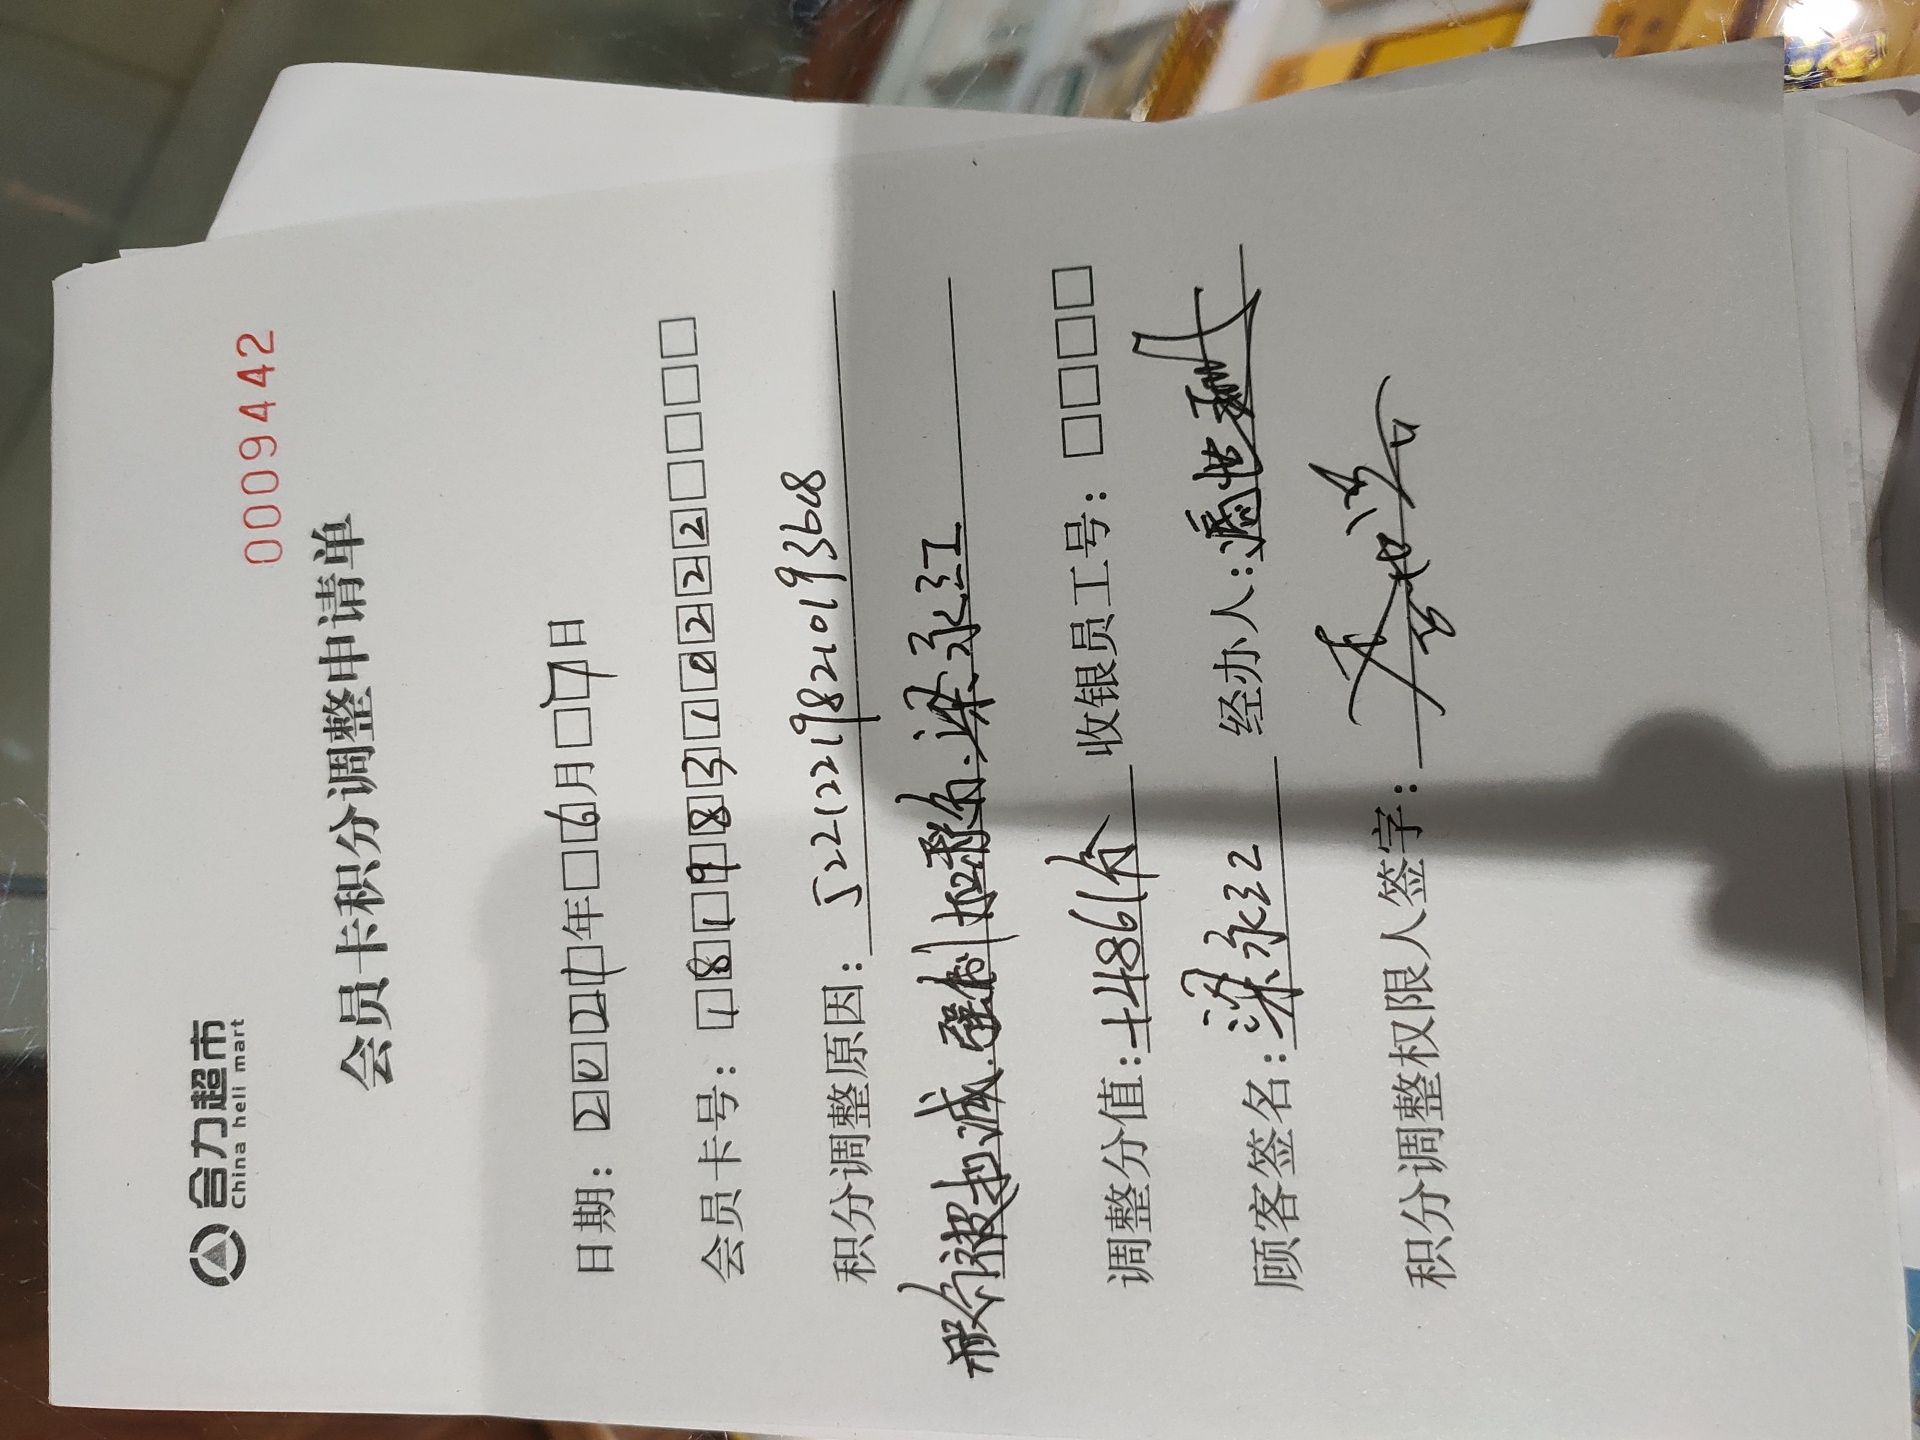 合力超市
China heli mart
0009442
会员卡积分调整申请单
日期：2021年6月17日
会员卡号：18198310222
积分调整原因：522122198210193618
积分被扣减.强制 梁永江
调整分值：+4861分 收银员工号：
顾客签名：梁永江 经办人：潘世
积分调整权限人签字：